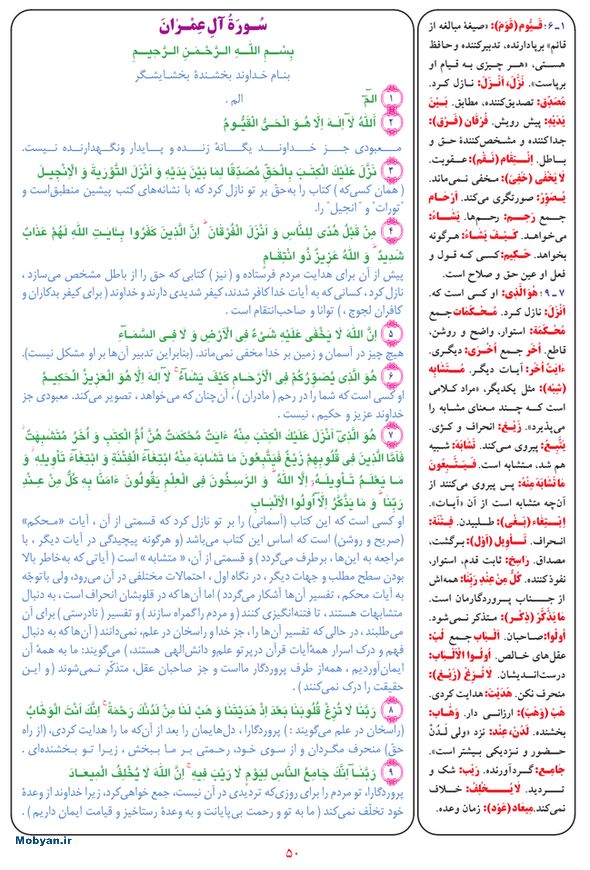 سُورَةُ آلِ عِمْرَانَ
بِسْمِ اللَّهِ الرَّحْمَنِ الرَّحِيمِ
بنام خداوند بخشندهٔ بخشایشگر
۱ الٓمٓ الم .
۲ أَللَّهُ لَآ إِلَهَ إِلَّا هُوَ الْحَىُّ الْقَيُّومُ
معبودی جز خداوند یگانهٔ زنده و پایدار ونگهدارنده نیست.
۳ نَزَّلَ عَلَيْكَ الْكِتَبَ بِالْحَقِّ مُصَدِّقًا لِمَا بَيْنَ يَدَيْهِ وَ أَنْزَلَ التَّوْرَيةَ وَ الْإِنْجِيلَ
(همان کسی‌که) کتاب را به‌حق بر تو نازل کرد که با نشانه‌های کتب پیشین منطبق‌است و
"تورات" و "انجیل" را.
۴ مِنْ قَبْلُ هُدًى لِلنَّاسِ وَ أَنْزَلَ الْفُرْقَانَ ۗ إِنَّ الَّذِينَ كَفَرُوا بِـَايَتِ اللَّهِ لَهُمْ عَذَابٌ
شَدِيدٌ ۗ وَ اللَّهُ عَزِيزٌ ذُو انْتِقَامٍ
پیش از آن برای هدایت مردم فرستاده و (نیز) کتابی که حق را از باطل مشخص می‌سازد ،
نازل کرد ، کسانی که به آیات خدا کافر شدند، کیفر شدیدی دارند و خداوند (برای کیفر بدکاران و
کافران لجوج ) ، توانا و صاحب‌انتقام است .
۵ إِنَّ اللَّهَ لَا يَخْفَى عَلَيْهِ شَىْءٌ فِى الْأَرْضِ وَ لَا فِى السَّمَآءِ
هیچ چیز در آسمان و زمین بر خدا مخفی نمی‌ماند. (بنابراین تدبیر آن‌ها بر او مشکل نیست).
۶ هُوَ الَّذِى يُصَوِّرُكُمْ فِى الْأَرْحَامِ كَيْفَ يَشَآءُ ۚ لَآ إِلَهَ إِلَّا هُوَ الْعَزِيزُ الْحَكِيمُ
او کسی است که شما را در رحم (مادران) ، آن‌چنان که می‌خواهد ، تصویر می‌کند. معبودی جز
خداوند عزیز و حکیم ، نیست .
۷ هُوَ الَّذِىٓ أَنْزَلَ عَلَيْكَ الْكِتَبَ مِنْهُ ءَايَتٌ مُحْكَمَتٌ هُنَّ أُمُّ الْكِتَبِ وَ أُخَرُ مُتَشَبِهَتٌ ۖ
فَأَمَّا الَّذِينَ فِى قُلُوبِهِمْ زَيْغٌ فَيَتَّبِعُونَ مَا تَشَابَهَ مِنْهُ ابْتِغَآءَ الْفِتْنَةِ وَ ابْتِغَآءَ تَأْوِيلِهِ ۗ وَ
مَا يَعْلَمُ تَأْوِيلَهُٓ إِلَّا اللَّهُ ۗ وَ الرَّسِخُونَ فِى الْعِلْمِ يَقُولُونَ ءَامَنَّا بِهِ كُلٌّ مِنْ عِنْدِ
رَبِّنَا ۗ وَ مَا يَذَّكَّرُ إِلَّآ أُولُوا الْأَلْبَابِ
او کسی است که این کتاب (آسمانی) را بر تو نازل کرد که قسمتی از آن ، آیات «محکم»
(صریح و روشن) است که اساس این کتاب می‌باشد (و هرگونه پیچیدگی در آیات دیگر ، با
مراجعه به این‌ها ، برطرف می‌گردد ) و قسمتی از آن، « متشابه » است ( آیاتی که به‌خاطر بالا
بودن سطح مطلب و جهات دیگر ، در نگاه اول ، احتمالات مختلفی در آن می‌رود، ولی باتوجّه
به آیات محکم ، تفسیر آن‌ها آشکار می‌گردد ) اما آن‌ها که در قلوبشان انحراف است ، به دنبال
متشابهات هستند ، تا فتنه‌انگیزی کنند (و مردم را گمراه سازند) و تفسیر (نادرستی) برای آن
می‌طلبند ، در حالی که تفسیر آن‌ها را ، جز خدا و راسخان در علم، نمی‌دانند (آن‌ها که به دنبال
فهم و درک اسرار همهٔ آیات قرآن درپرتو علم‌و دانش‌الهی هستند،) می‌گویند: ما به همهٔ آن
ایمان‌آوردیم ، همه‌از طرف پروردگار مااست و جز صاحبان عقل، متذکّر نمی‌شوند ( و این
حقیقت را درک نمی‌کنند )
۸ رَبَّنَا لَا تُزِغْ قُلُوبَنَا بَعْدَ إِذْ هَدَيْتَنَا وَ هَبْ لَنَا مِنْ لَدُنْكَ رَحْمَةً ۚ إِنَّكَ أَنْتَ الْوَهَّابُ
(راسخان در علم می‌گویند :) پروردگارا ، دل‌هایمان را بعد از آن‌که ما را هدایت کردی، (از راه
حق) منحرف مگردان و از سوی خود، رحمتی بر ما ببخش ، زیرا تو بخشنده‌ای .
۹ رَبَّنَآ إِنَّكَ جَامِعُ النَّاسِ لِيَوْمٍ لَا رَيْبَ فِيهِ ۚ إِنَّ اللَّهَ لَا يُخْلِفُ الْمِيعَادَ
پروردگارا، تو مردم را برای روزی‌که تردیدی در آن نیست، جمع خواهی‌کرد، زیرا خداوند از وعدهٔ
خود تخلّف نمی‌کند ( ما به تو و رحمت بی‌پایانت و به وعدهٔ رستاخیز و قیامت ایمان داریم ) .
۱ـ۶: قَيُّوم (قَوَمَ): «صیغهٔ مبالغه از
قائم» برپادارنده، تدبیرکننده و حافظ
هستی، «هر چیزی به قیام او
برپاست». نَزَّلَ، أَنْزَلَ: نازل کرد.
مُصَدِّق: تصدیق‌کننده، مطابق. بَيْنَ
يَدَيْهِ: پیش رویش. فُرْقَان (فَرَقَ):
جداکننده و مشخص‌کنندهٔ حق و
باطل. اِنْتِقَام (نَقَمَ): عقوبت.
لَا يَخْفَى (خَفِيَ): مخفی نمی‌ماند.
يُصَوِّرُ: صورتگری می‌کند. أَرْحَام
جمع رَحِم: رحم‌ها. يَشَاءُ:
می‌خواهد. كَيْفَ يَشَاءُ: هرگونه
بخواهد. حَكِيم: کسی که قول و
فعل او عین حق و صلاح است.
۷ـ۹: هُوَ الَّذِي: او کسی است که.
أَنْزَلَ: نازل کرد. مُحْكَمَات جمع
مُحْكَمَة: استوار، واضح و روشن،
قاطع. أُخَر جمع أُخْرَى: دیگری.
ءَايَاتٌ أُخَر: آیات دیگر. مُتَشَابِه
(شَبِهَ): مثل یکدیگر، «مراد کلامی
است که چند معنای مشابه را
می‌پذیرد». زَيْغ: انحراف و کژی.
يَتَّبِعُ: پیروی می‌کند. تَشَابَهَ: شبیه
هم شد، متشابه است. فَيَتَّبِعُونَ
مَا تَشَابَهَ مِنْهُ: پس پیروی می‌کنند از
آن‌چه متشابه است از آن «آیات».
ابْتِغَاء (بَغَى): طلبیدن. فِتْنَة:
انحراف. تَأْوِيل (أَوَلَ): برگشت،
مصداق. رَاسِخ: ثابت قدم، استوار،
نفوذکننده. كُلٌّ مِنْ عِنْدِ رَبِّنَا: همه‌اش
از جناب پروردگارمان است.
مَا يَذَّكَّرُ (ذَكَرَ): متذکر نمی‌شود.
أُولُوا: صاحبان. أَلْبَاب جمع لُبّ:
عقل‌های خالص. أُولُوا الْأَلْبَابِ:
درست‌اندیشان. لَا تُزِغْ (زَيَغَ):
منحرف نکن. هَدَيْتَ: هدایت کردی.
هَبْ (وَهَبَ): ارزانی دار. وَهَّاب:
بخشنده. لَدُنْ، عِنْدَ: نزد «ولی لَدُنْ
حضور و نزدیکی بیشتر است».
جَامِع: گردآورنده. رَيْب: شک و
تردید. لَا يُخْلِفُ: خلاف
نمی‌کند. مِيعَاد (وَعَدَ): زمان وعده.
Mobyan.ir
۵۰